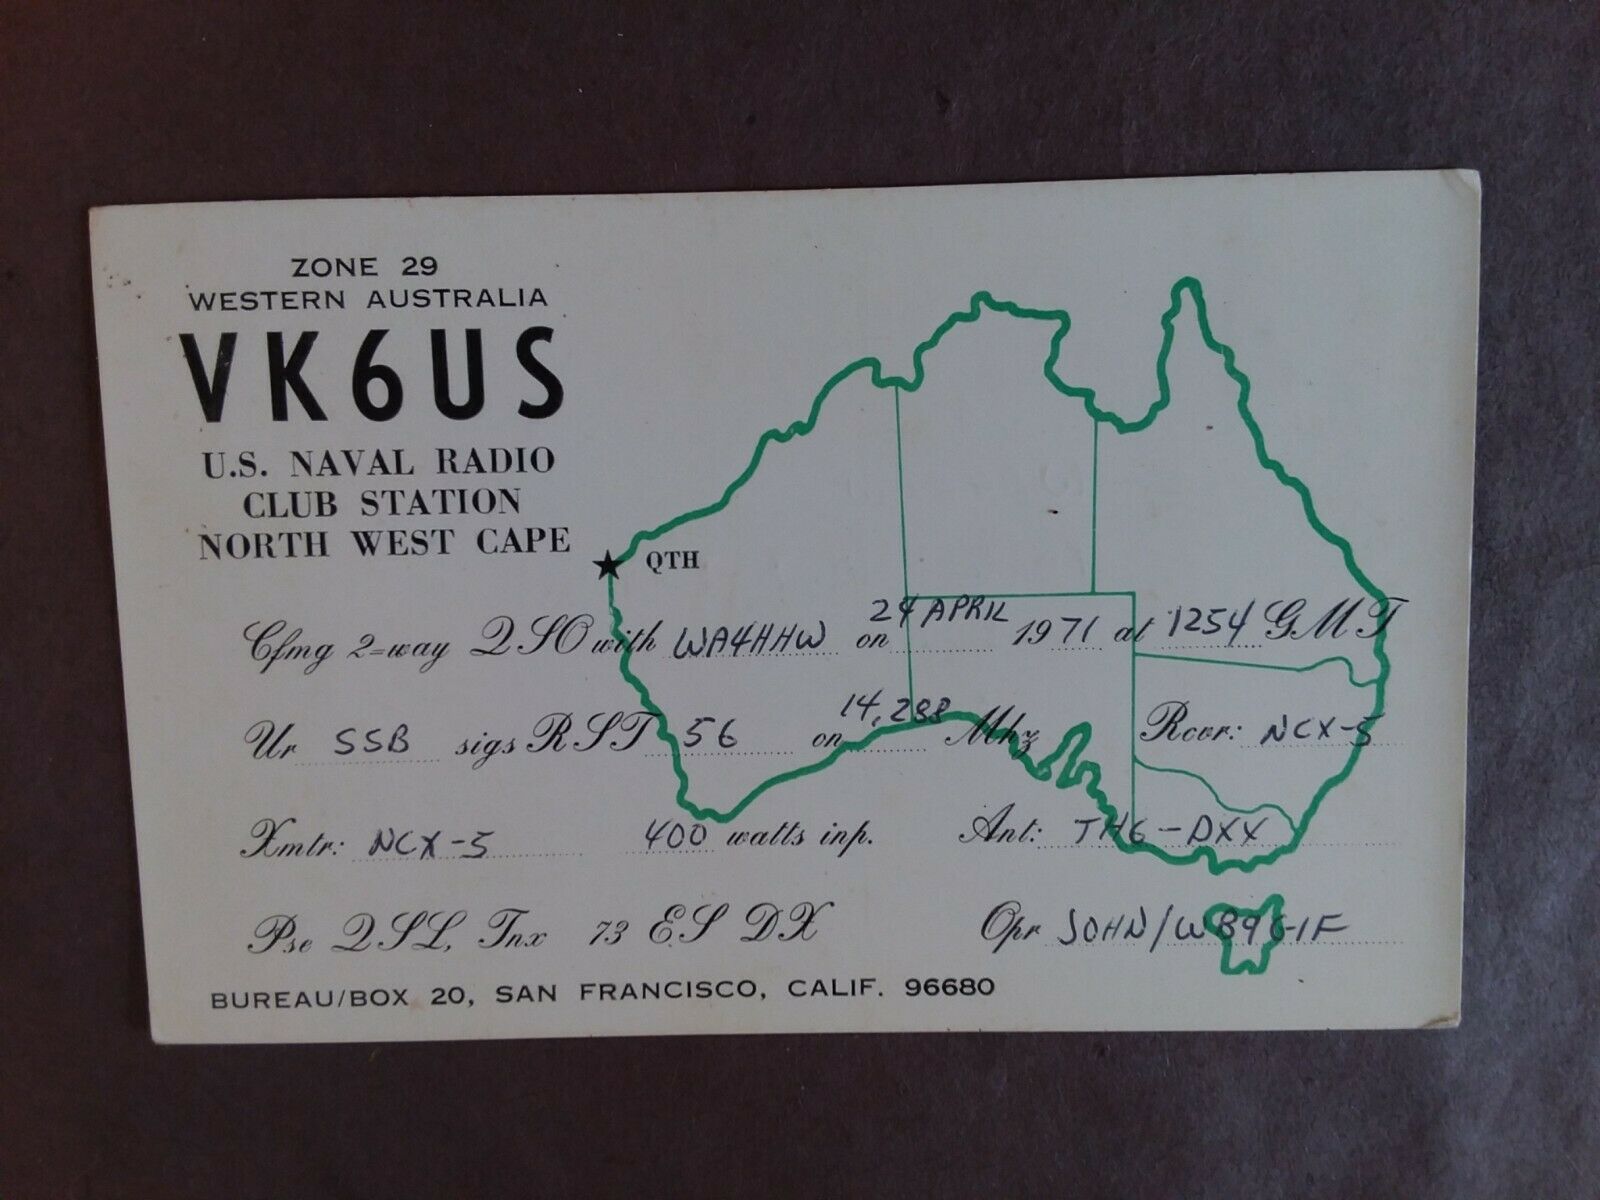 ZONE 29
WESTERN AUSTRALIA
VK6US
U.S. NAVAL RADIO
CLUB STATION
NORTH WEST CAPE
QTH
Cfmg 2=way QSO with WA4HHW on 24 APRIL 1971 at 1254 GMT
Ur SSB sigs RST 56 on 14,288 Mhz Rcvr: NCX-5
Xmtr: NCX-5 400 watts inp. Ant: TH6-DXX
Pse QSL, Tnx 73 ES DX Opr JOHN/WB9GIF
BUREAU/BOX 20, SAN FRANCISCO, CALIF. 96680